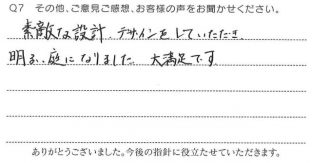 Q7 その他、ご意見ご感想、お客様の声をお聞かせください。
素敵な設計、デザインをしていただき、
明るい庭になりました。大満足です
ありがとうございました。今後の指針に役立たせていただきます。